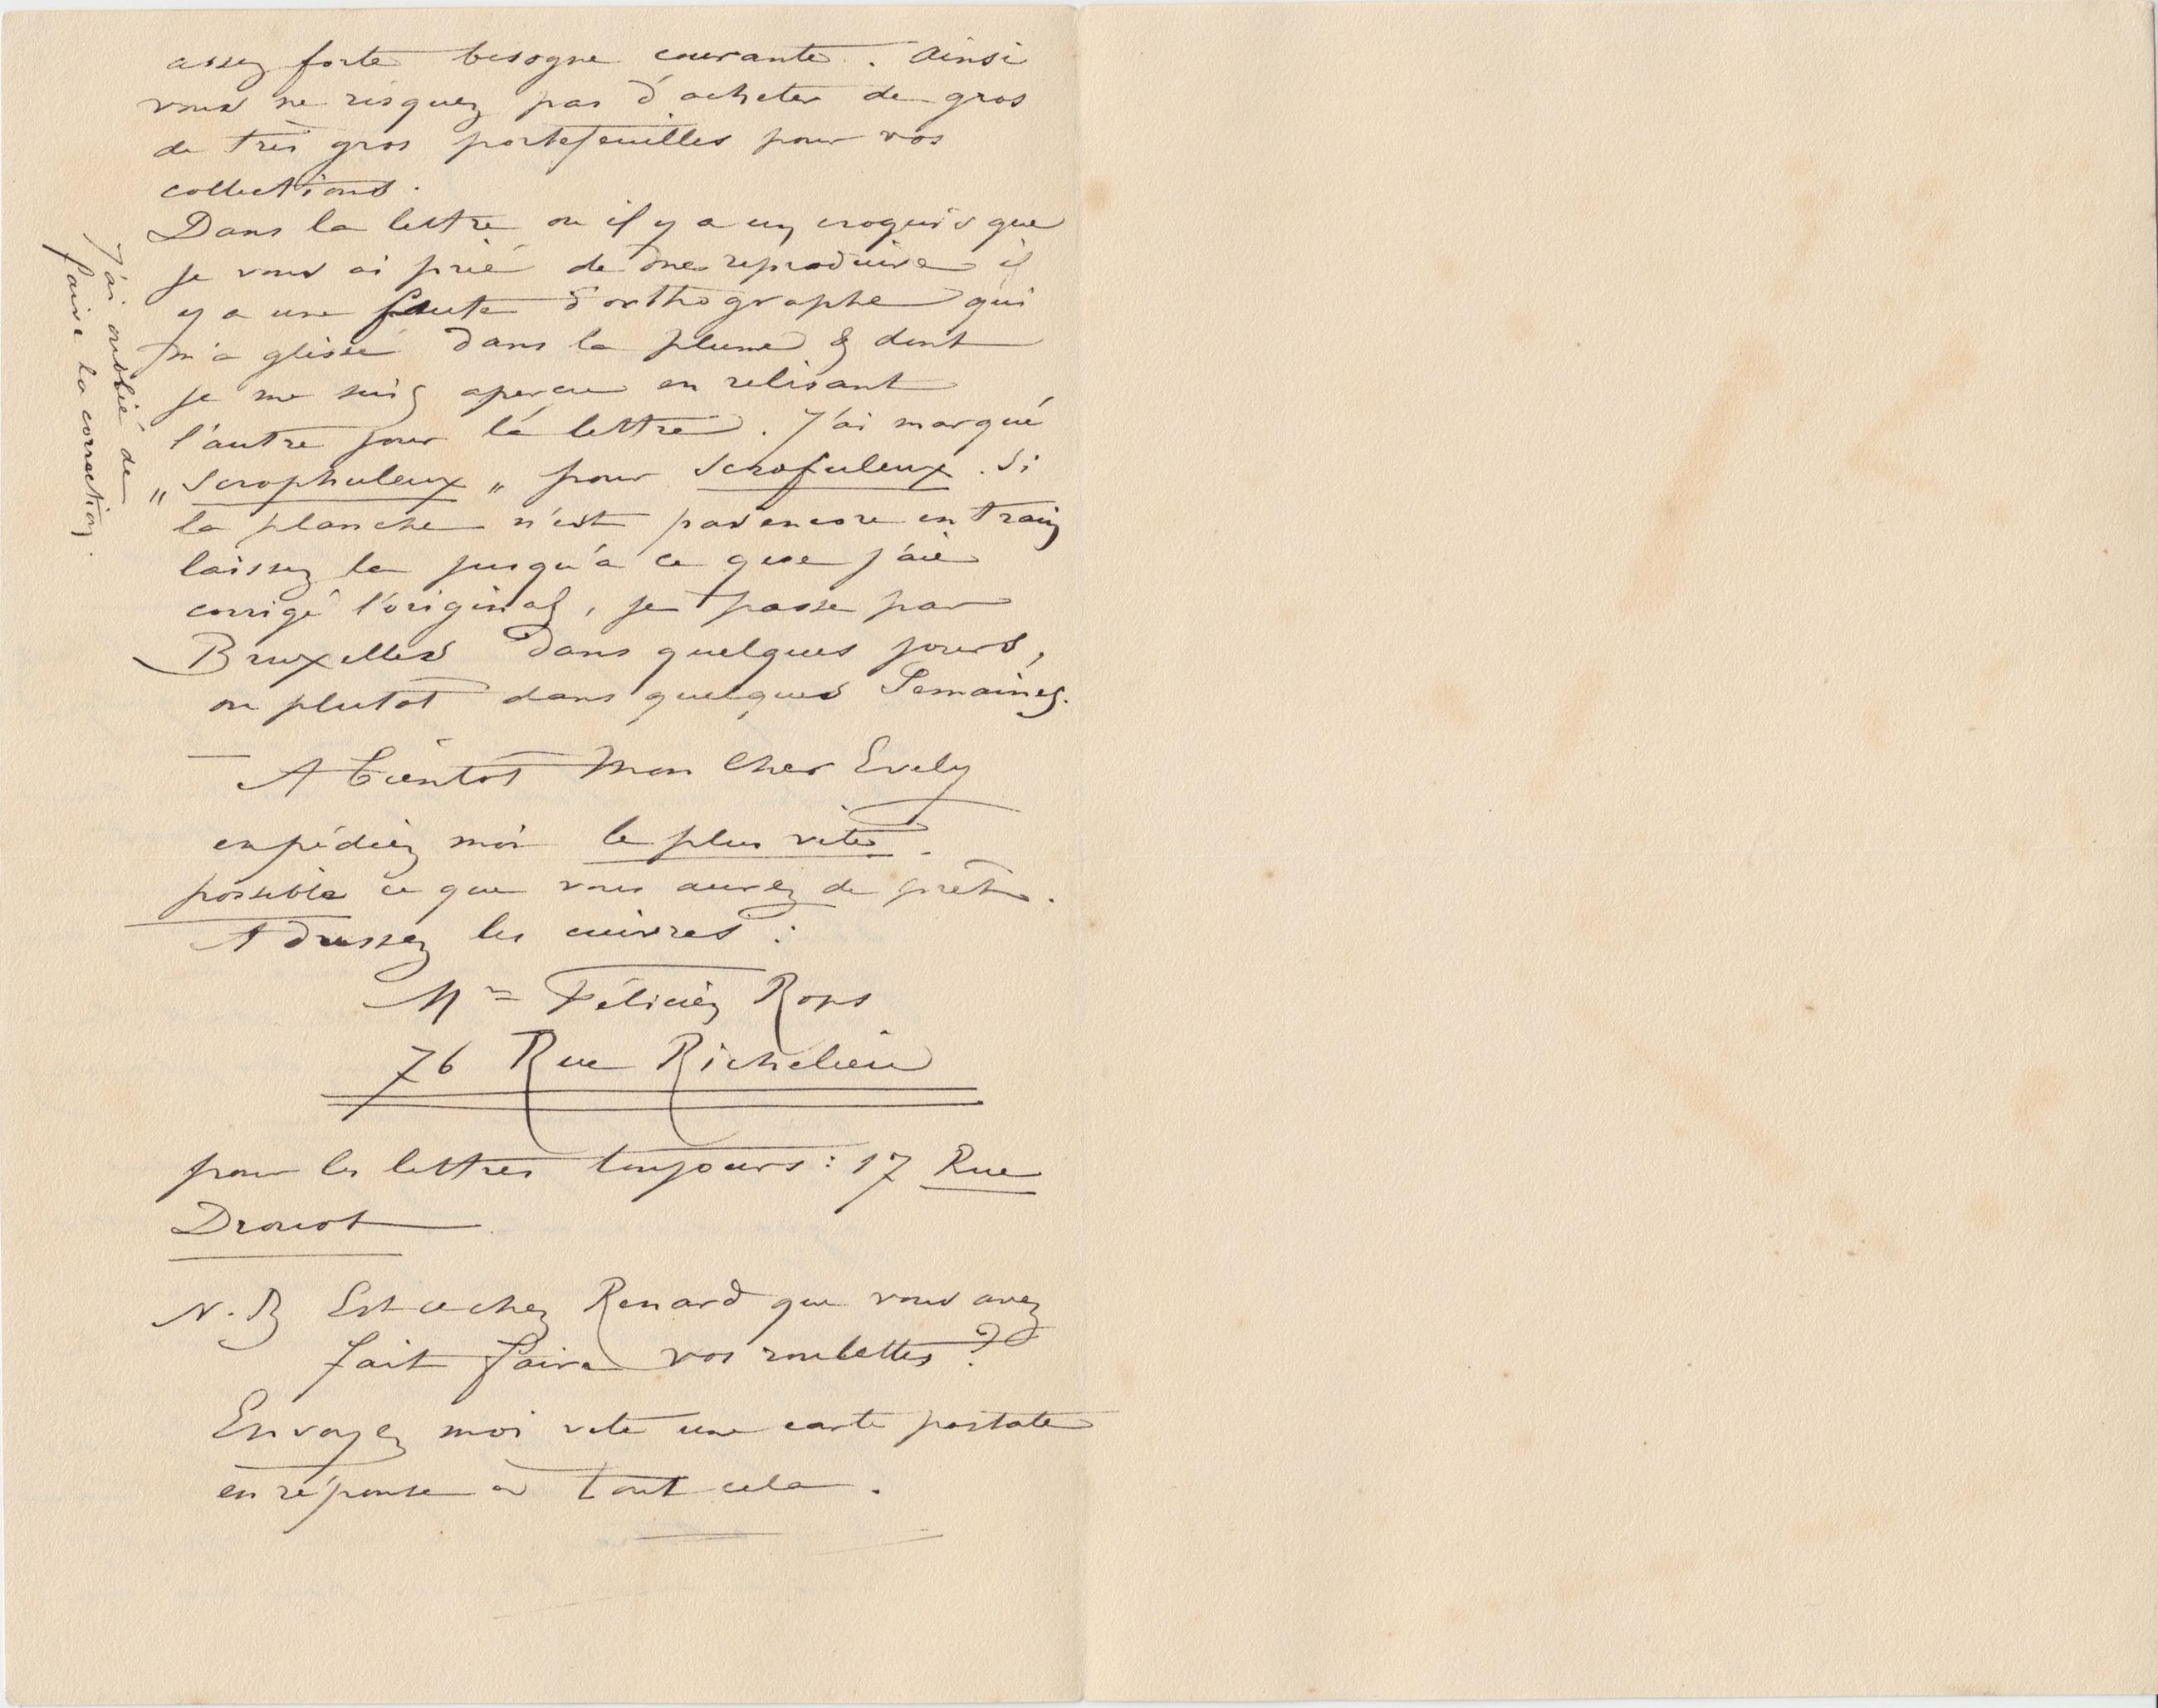 assez forte besogne courante. Ainsi
vous ne risquez pas d'acheter de gros
de très gros portefeuilles pour vos
collections.
Dans la lettre ou il y a un croquis que
je vous ai prié de me reproduire il
y a une faute d'orthographe qui
m'a glissé dans la plume & dont
je me suis aperçu en relisant
l'autre jour la lettre. J'ai marqué
"Scrophuleux" pour scrofuleux. Si
la planche n'est pas encore en train
laissez la jusqu'à ce que j'aie
corrigé l'original, je passe par
Bruxelles dans quelques jours,
ou plutot dans quelques Semaines.
J'ai oublié de
faire la correction.
– A bientot Mon Cher Evely
expédiez moi le plus vite
possible ce que vous aurez de prêt.
Adressez les cuivres :
Mr Félicien Rops
76 Rue Richelieu
pour les lettres toujours : 17 Rue
Drouot
N.B Est ce chez Renard que vous avez
fait faire vos roulettes ?
Envoyez moi vite une carte postale
en réponse à tout cela.